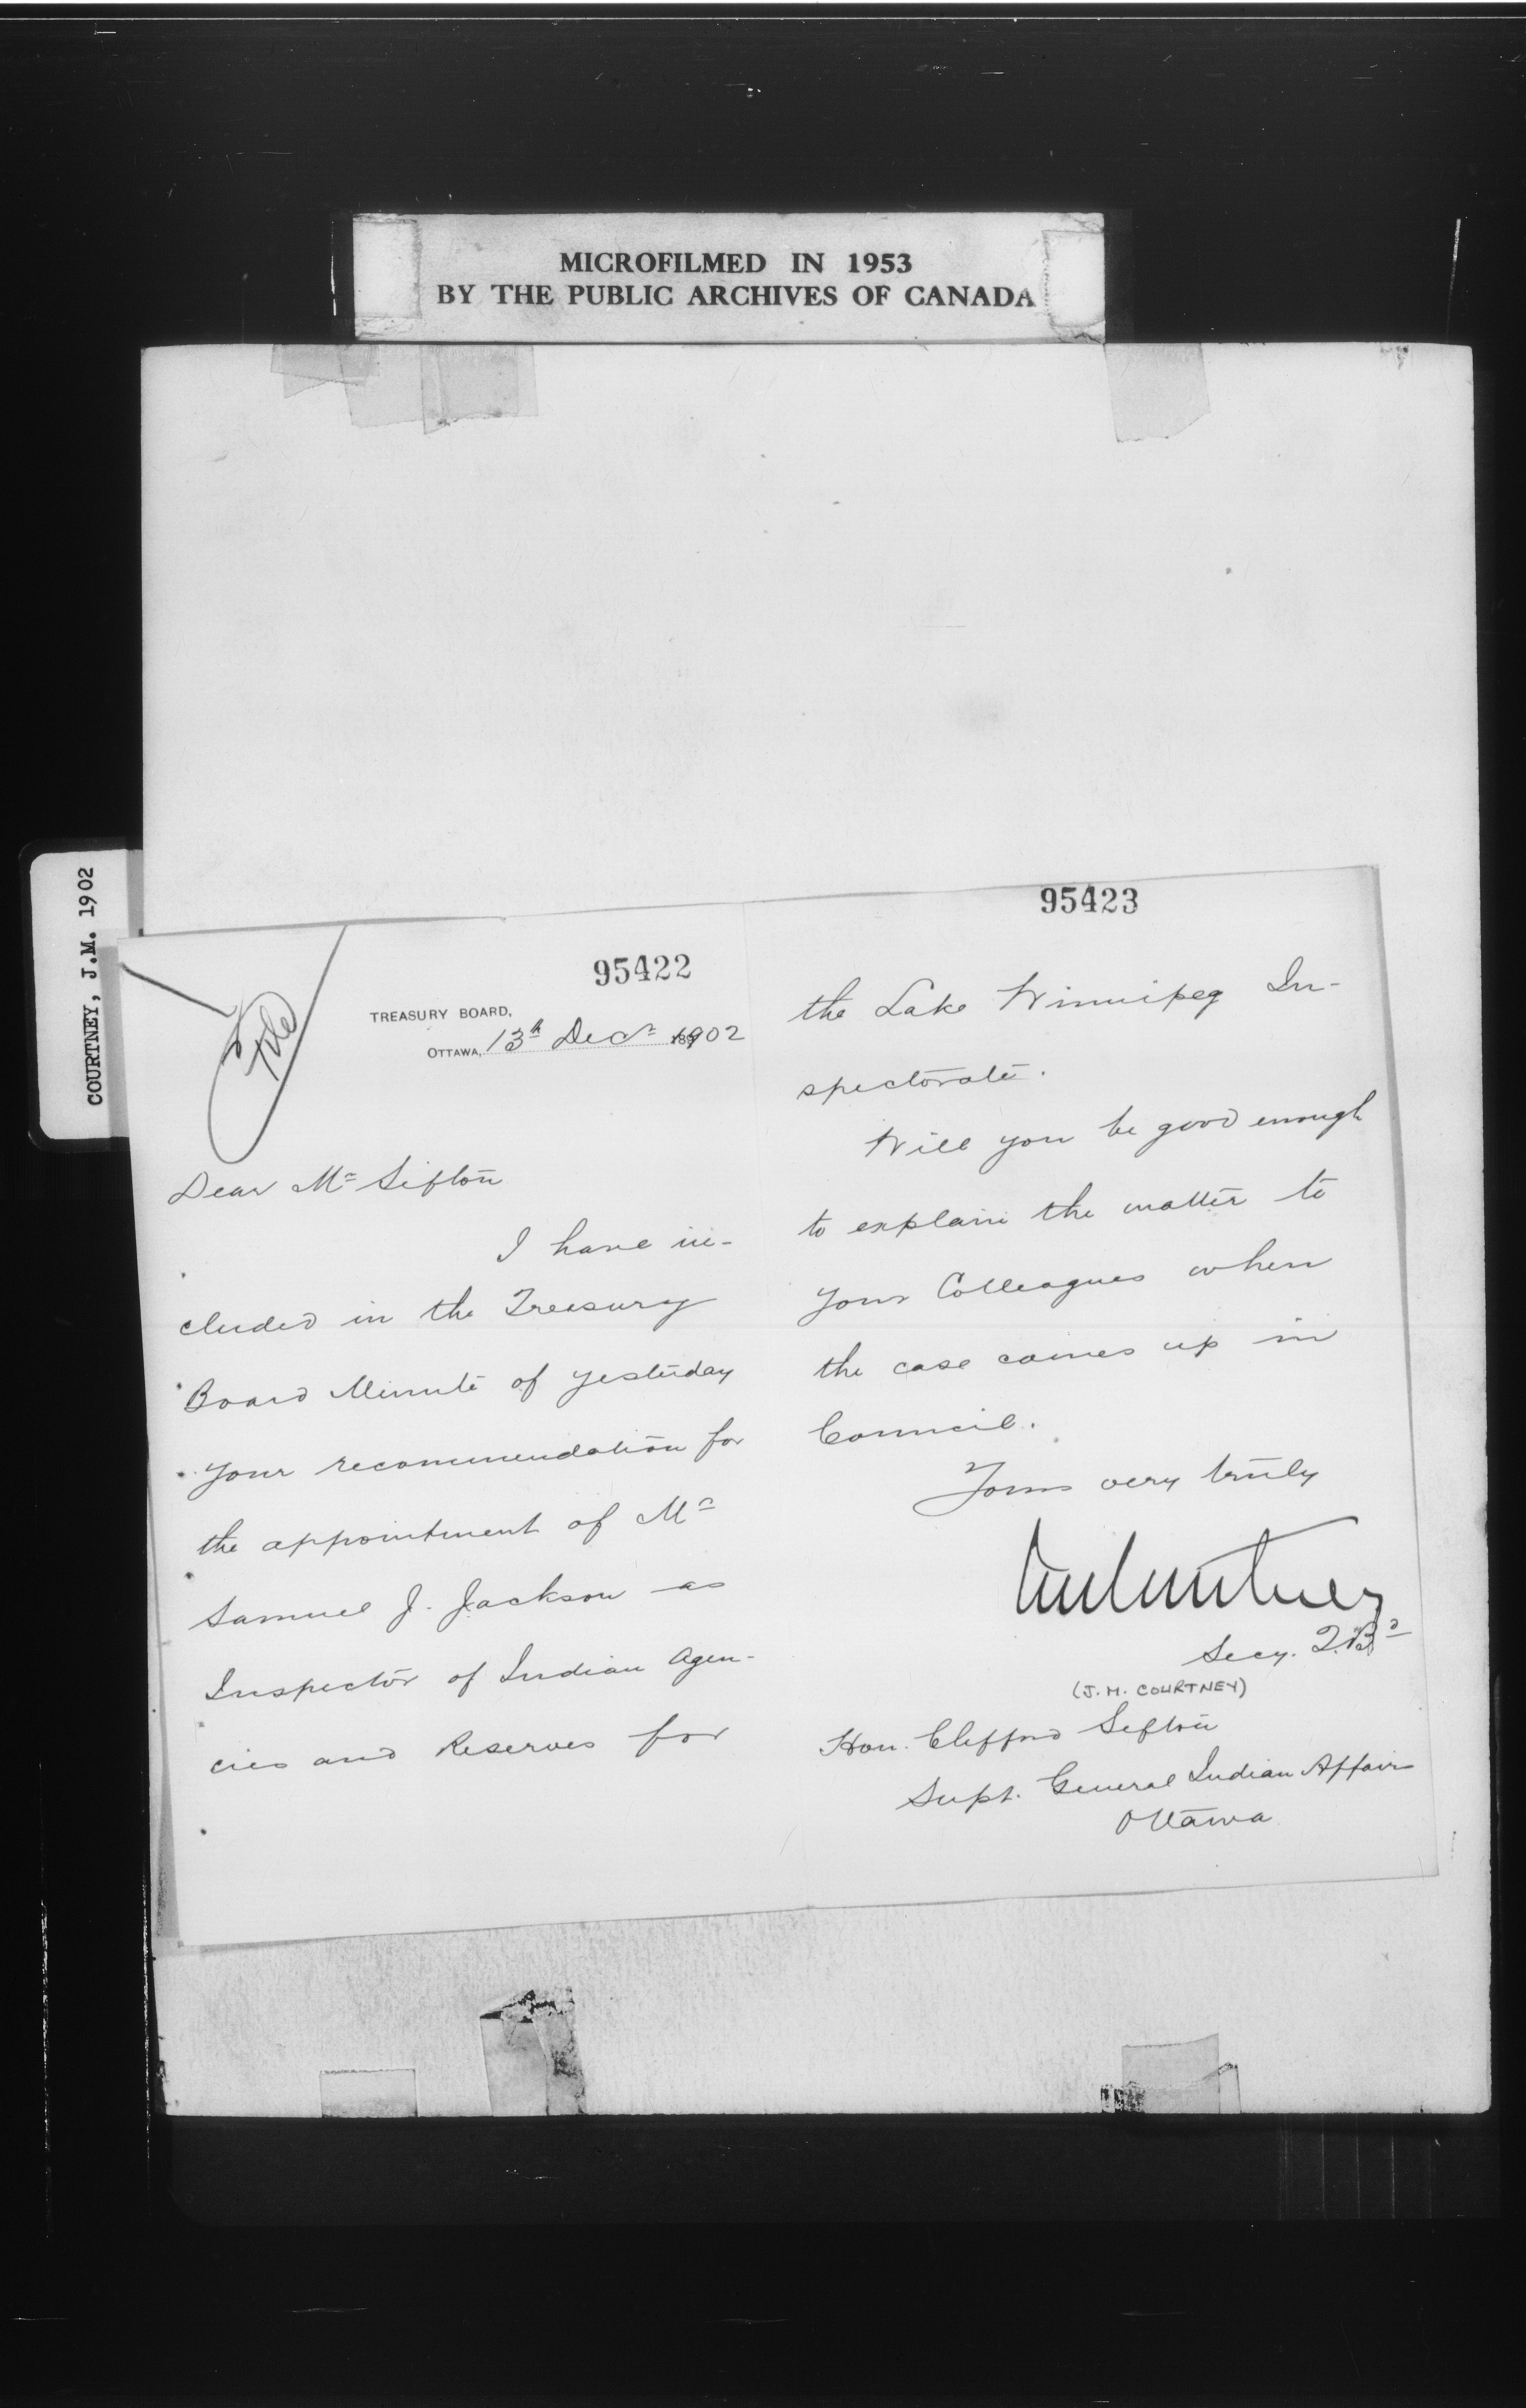 MICROFILMED IN 1953
BY THE PUBLIC ARCHIVES OF CANADA
COURTNEY, J.M. 1902
95422
File
TREASURY BOARD,
OTTAWA, 13th Decr 1902
Dear Mr Sifton
I have in-
cluded in the Treasury
Board Minute of yesterday
your recommendation for
the appointment of Mr
Samuel J. Jackson as
Inspector of Indian Agen-
cies and Reserves for
95423
the Lake Winnipeg In-
spectorate.
Will you be good enough
to explain the matter to
your Colleagues when
the case comes up in
Council.
Yours very truly
J M Courtney
Secy. T. Bd
(J.M. COURTNEY)
Hon. Clifford Sifton
Supt. General Indian Affairs
Ottawa